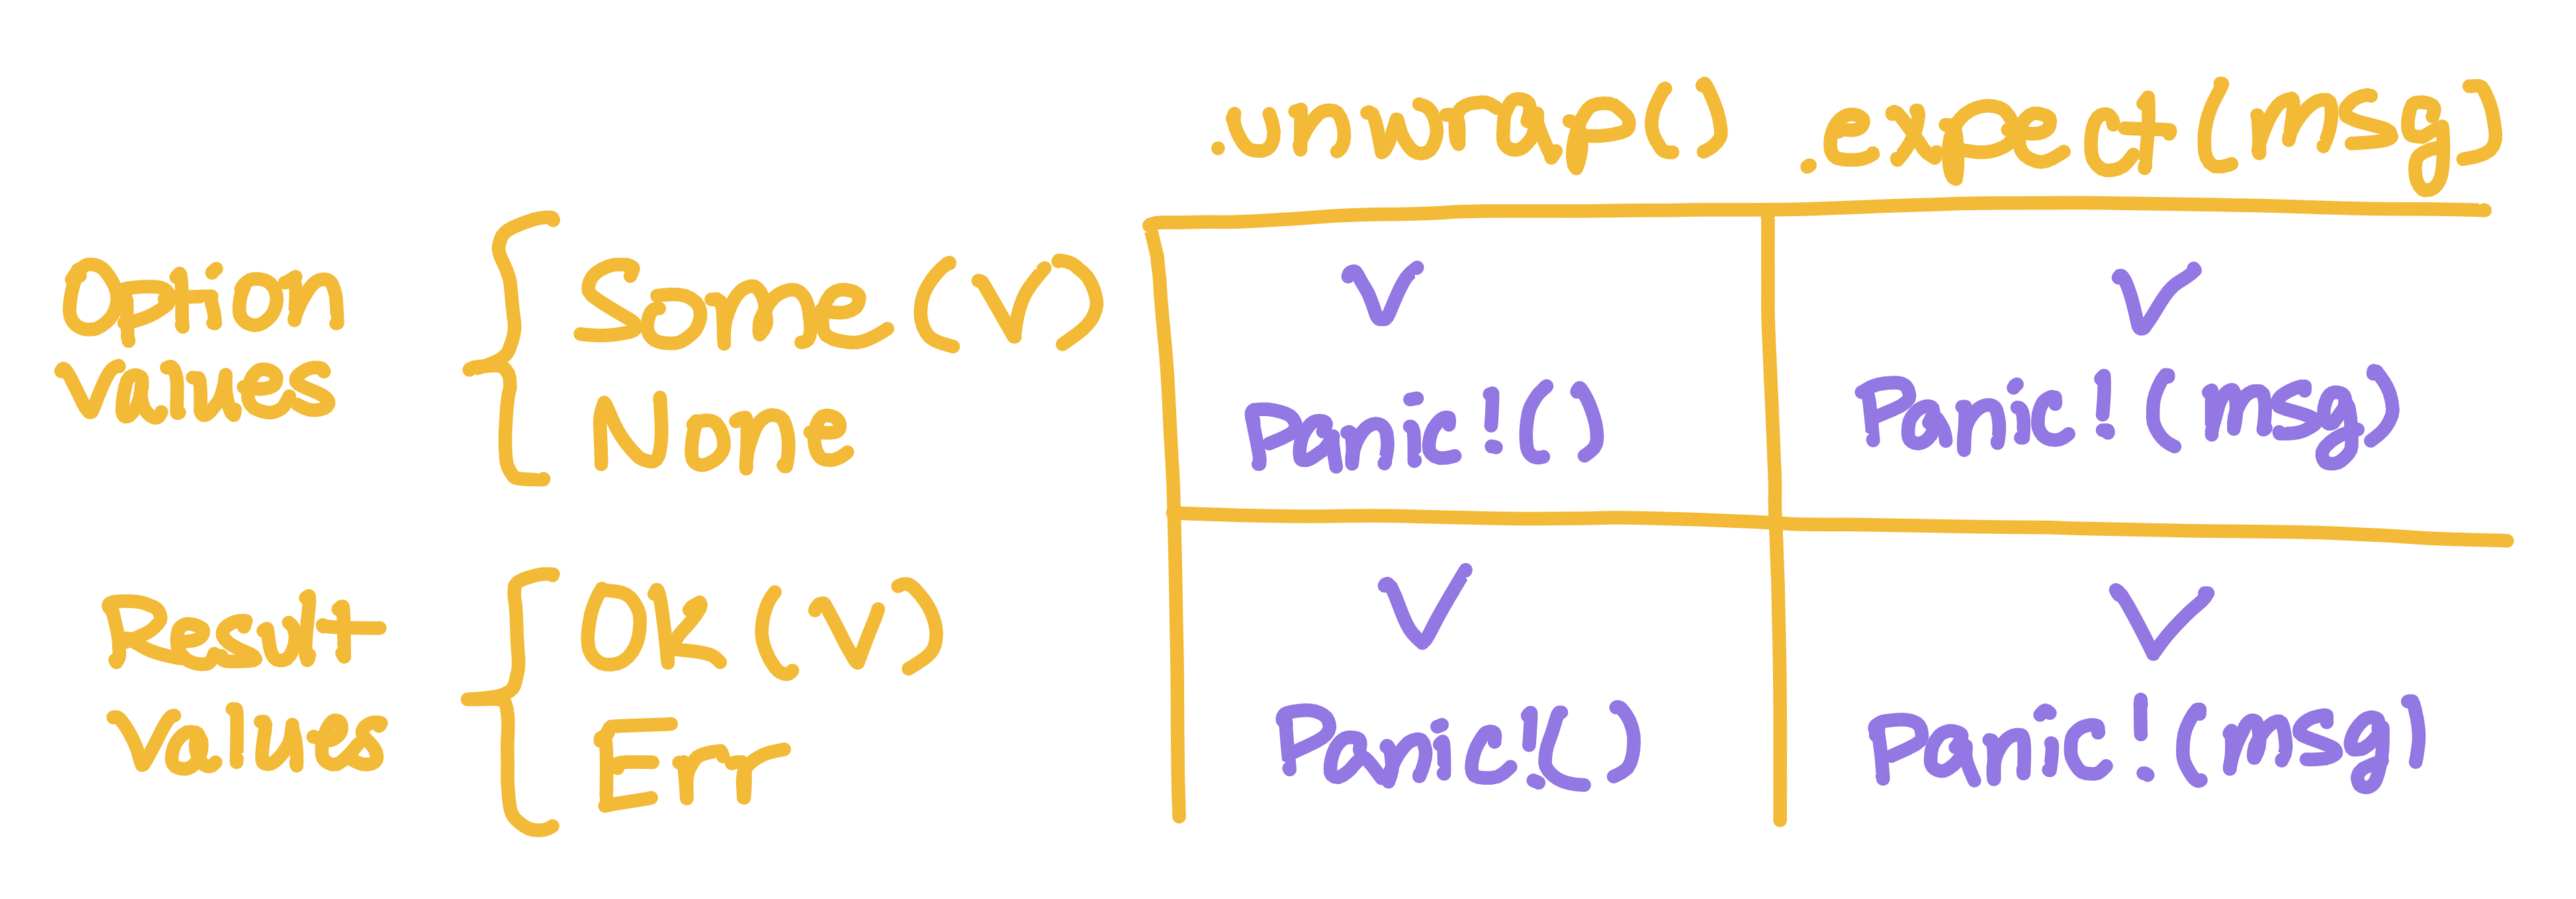 .unwrap() .expect(msg)
Option values
Some(V) V V
None Panic!() Panic!(msg)
Result values
OK(V) V V
Err Panic!() Panic!(msg)